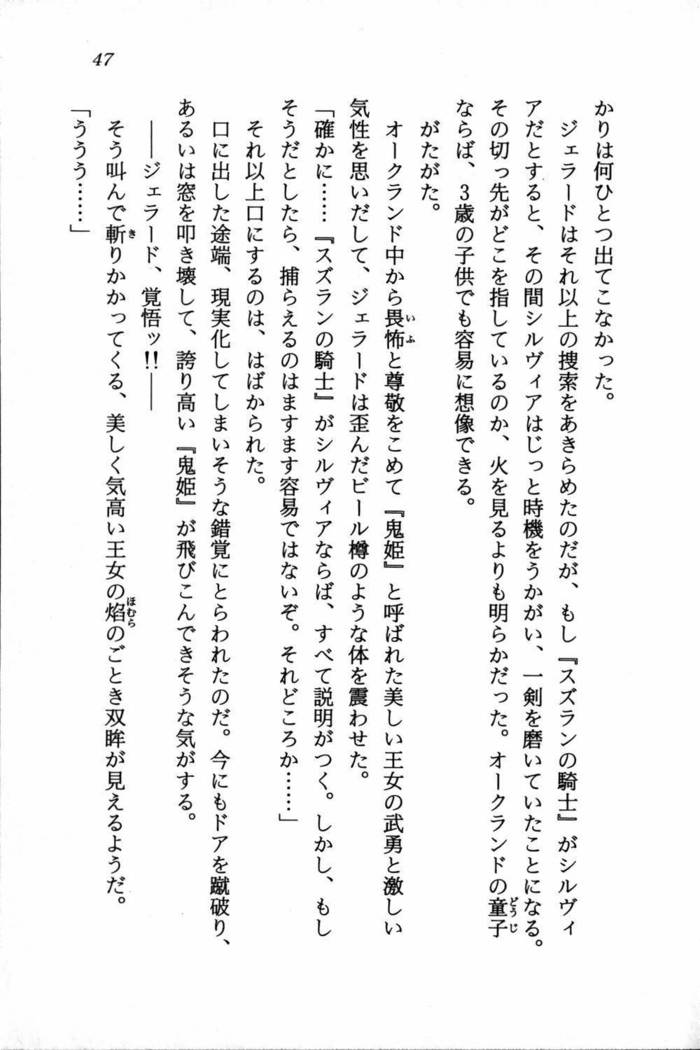 47
かりは何ひとつ出てこなかった。
ジェラードはそれ以上の捜索をあきらめたのだが、もし『スズランの騎士』がシルヴィ
アだとすると、その間シルヴィアはじっと時機をうかがい、一剣を磨いていたことになる。
その切っ先がどこを指しているのか、火を見るよりも明らかだった。オークランドの童子
どうじ
ならば、3歳の子供でも容易に想像できる。
がたがた。
オークランド中から畏怖と尊敬をこめて『鬼姫』と呼ばれた美しい王女の武勇と激しい
いふ
気性を思いだして、ジェラードは歪んだビール樽のような体を震わせた。
「確かに……『スズランの騎士』がシルヴィアならば、すべて説明がつく。しかし、もし
そうだとしたら、捕らえるのはますます容易ではないぞ。それどころか……」
それ以上口にするのは、はばかられた。
口に出した途端、現実化してしまいそうな錯覚にとらわれたのだ。今にもドアを蹴破り、
あるいは窓を叩き壊して、誇り高い『鬼姫』が飛びこんできそうな気がする。
――ジェラード、覚悟ッ!!――
そう叫んで斬りかかってくる、美しく気高い王女の焰のごとき双眸が見えるようだ。
き
ほむら
「ううう……」